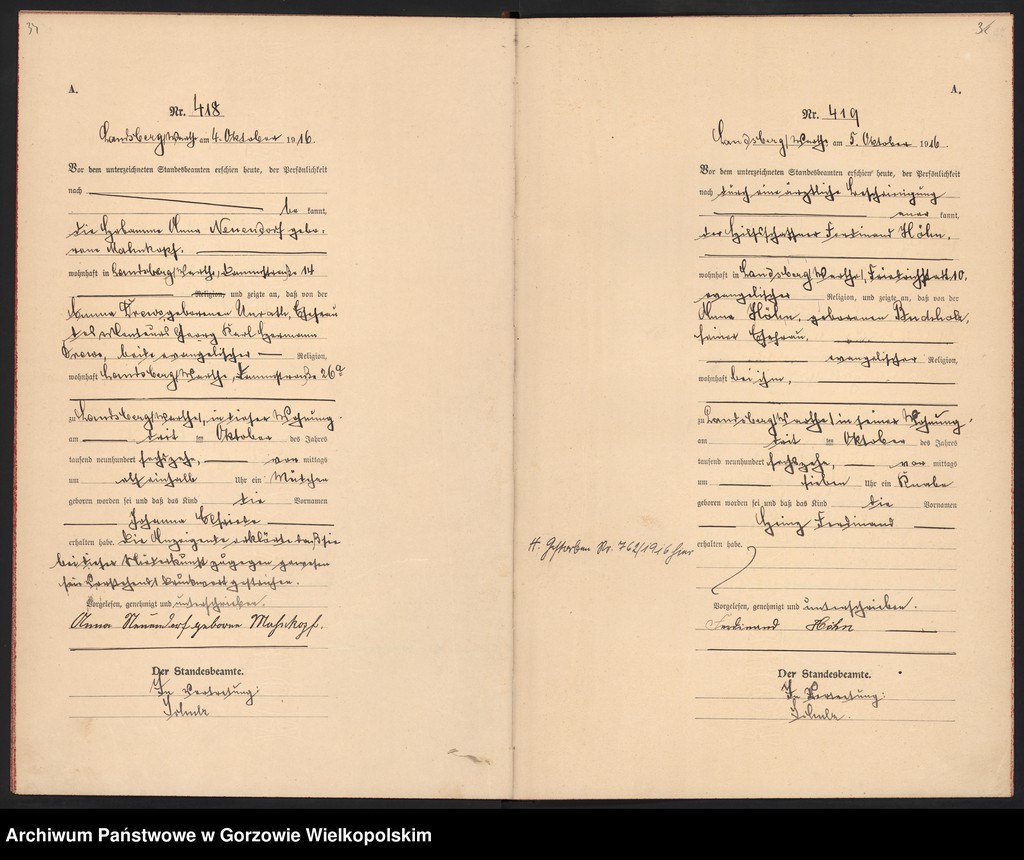 A.
Nr. 418
Landsberg/Warthe am 4. Oktober 1916.
Vor dem unterzeichneten Standesbeamten erschien heute, der Persönlichkeit
nach
be kannt,
die Hebamme Anna Neuendorf gebo-
rene
wohnhaft in Landsberg/Warthe, Dammstraße 14
Religion, und zeigte an, daß von der
geborenen Unrath, Ehefrau
des Monteurs Georg Karl Hermann
beide evangelischer Religion,
wohnhaft Landsberg/Warthe, Dammstraße 26a
zu Landsberg/Warthe, in dieser Wohnung
am drei ten Oktober des Jahres
tausend neunhundert sechszehn, vor mittags
um acht einhalb Uhr ein Mädchen
geboren worden sei und daß das Kind die Vornamen
Johanna Elfriede
erhalten habe. Die Anzeigende erklärte daß sie
bei dieser Niederkunft zugegen gewesen
sei. Vorstehend 1 Druckwort gestrichen.
Vorgelesen, genehmigt und unterschrieben.
Anna Neuendorf geborene
Der Standesbeamte.
In Vertretung:
A.
Nr. 419
Landsberg/Warthe am 5. Oktober 1916.
Vor dem unterzeichneten Standesbeamten erschien heute, der Persönlichkeit
nach durch eine ärztliche Bescheinigung
aner kannt,
der Hilfsschaffner Ferdinand Höhn,
wohnhaft in Landsberg/Warthe, Friedrichstadt 10,
evangelischer Religion, und zeigte an, daß von der
Anna Höhn, geborenen
seiner Ehefrau,
evangelischer Religion,
wohnhaft bei ihm,
zu Landsberg/Warthe in seiner Wohnung
am drei ten Oktober des Jahres
tausend neunhundert sechszehn, vor mittags
um sieben Uhr ein Knabe
geboren worden sei und daß das Kind die Vornamen
Heinz Ferdinand
erhalten habe.
H. Gestorben Nr. 762/1916 hier
Vorgelesen, genehmigt und unterschrieben.
Ferdinand Höhn
Der Standesbeamte.
In Vertretung:
Archiwum Państwowe w Gorzowie Wielkopolskim